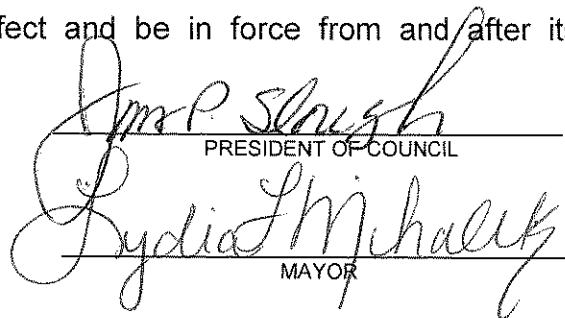 fect and be in force from and after it
P. Slough
PRESIDENT OF COUNCIL
Lydia L Mihalik
MAYOR